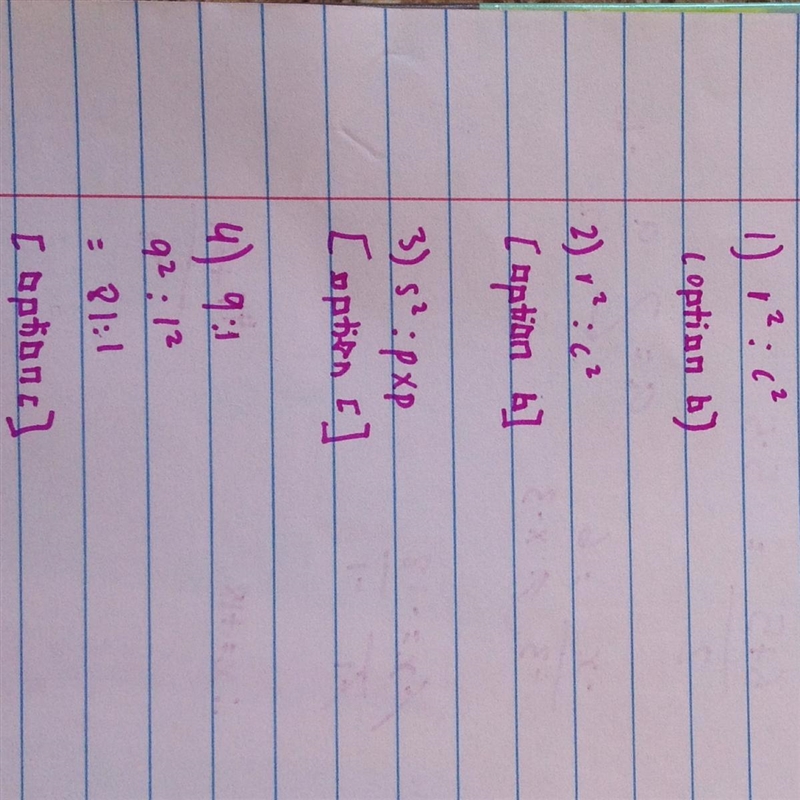 1) r² : c²
(option b)
2) r² : c²
[option b]
3) s² : p×p
[option c]
4) 9:1
9² : 1²
= 81:1
[option c]